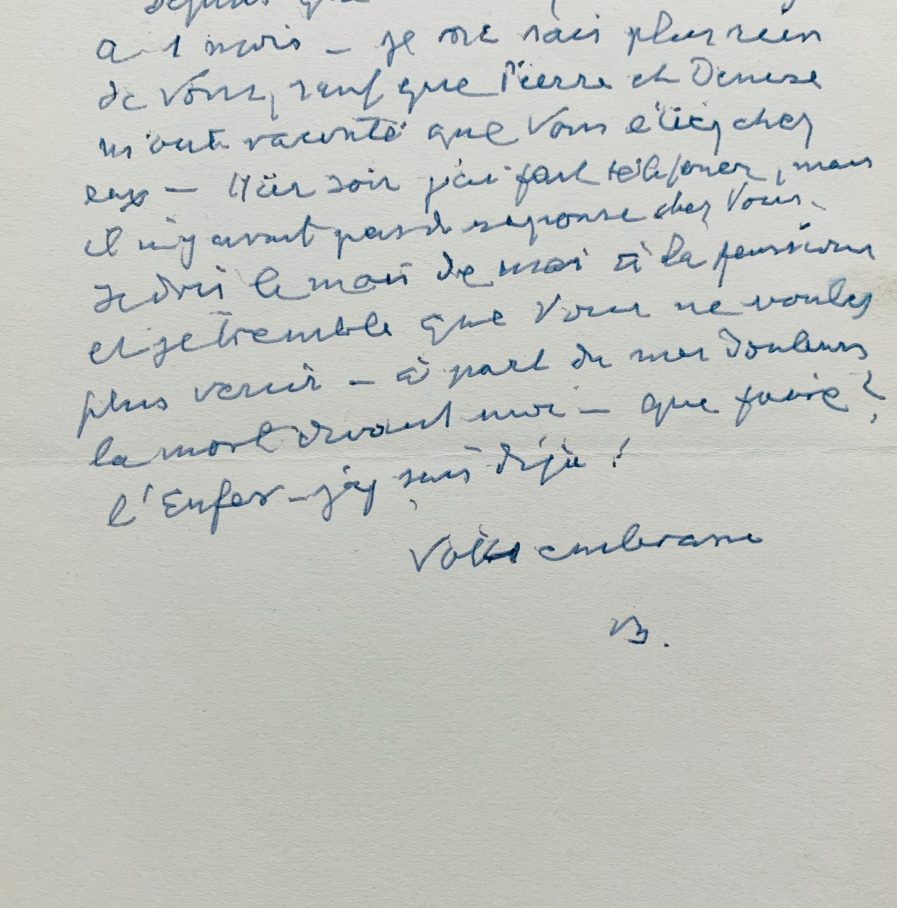 depuis que
a 1 mois – je ne sais plus rien
de Vous, sauf que Pierre et Denise
m'ont raconté que Vous étiez chez
eux – Hier soir j'ai fait téléfoner, mais
il n'y avait pas de reponse chez Vous.
le mois de mai à la pension
et je tremble que Vous ne voulez
plus venir – à part de mes douleurs
la mort devant moi – que faire?
l'Enfer – j'y suis déjà!
Vous embrasse
B.